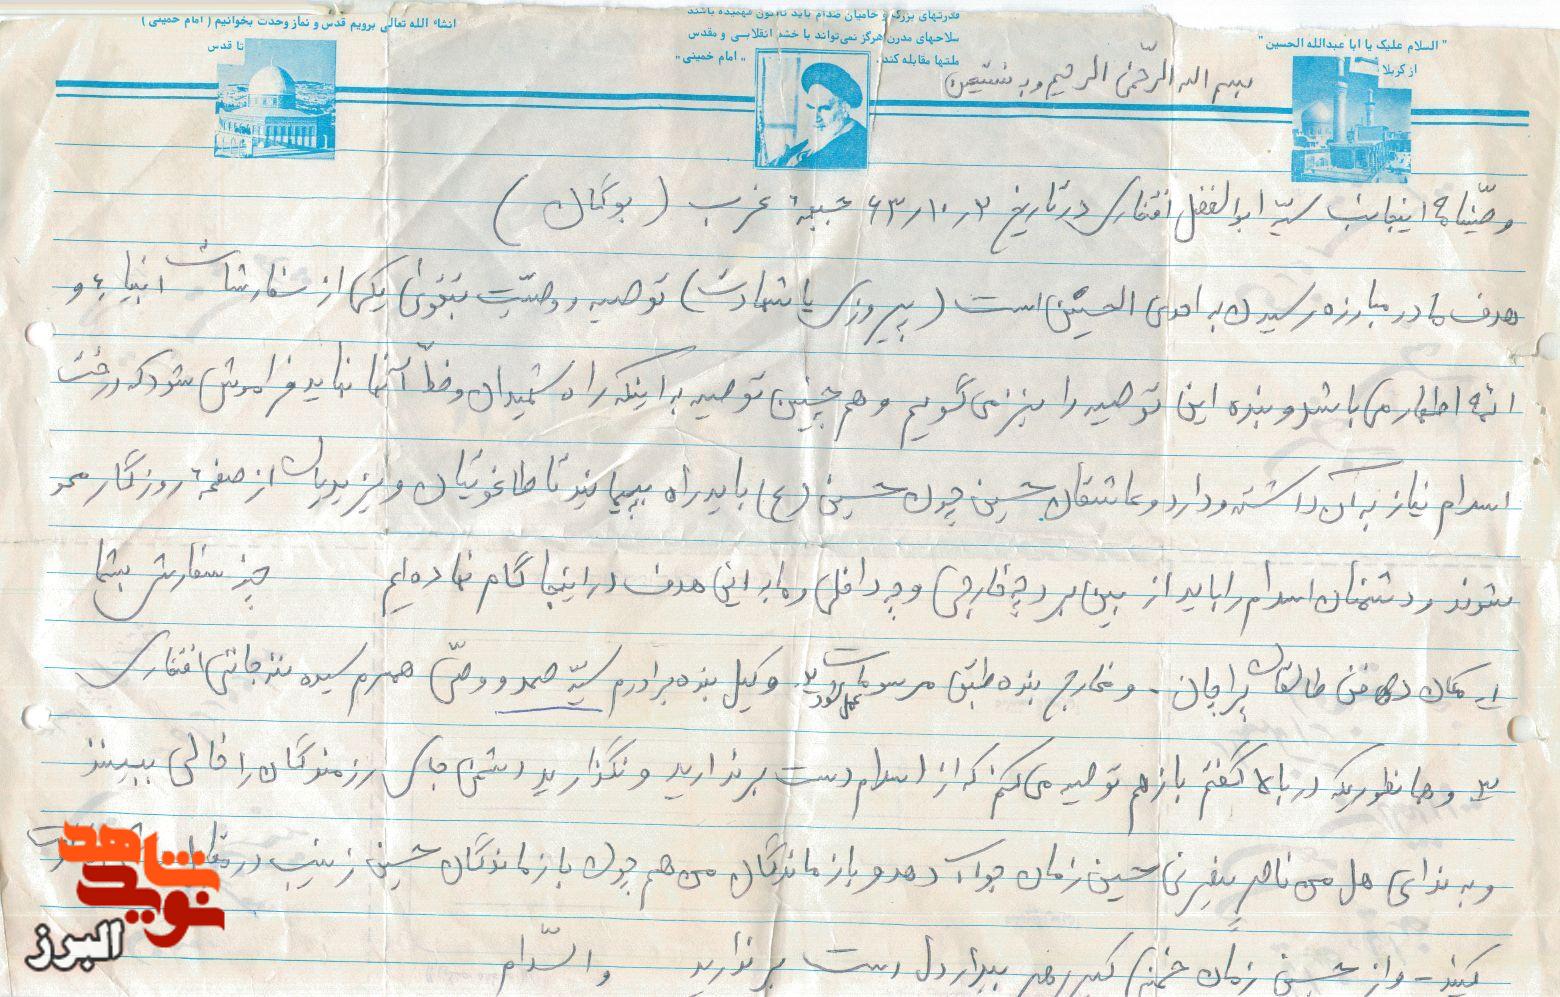 انشاء الله تعالی برویم قدس و نماز وحدت بخوانیم ( امام خمینی )
تا قدس
قدرتهای بزرگ و حامیان صدام باید تاکنون فهمیده باشند
سلاحهای مدرن هرگز نمی‌تواند با خشم انقلابی و مقدس
ملتها مقابله کند. " امام خمینی "
" السلام علیک یا ابا عبدالله الحسین "
از کربلا
بسم الله الرحّمن الرحیم و به نستعین
وصیّتنامه اینجانب سیّد ابوالفضل افتخاری در تاریخ ۶۳٫۱۰٫۳ جبهه غرب ( بوکان )
هدف ما در مبارزه رسیدن به احدی الحسنین است ( پیروزی یا شهادت ) توصیه و وصیّت بتقوی یکی از سفارشات انبیاء و
ائمه اطهار می باشد و بنده این توصیه را نیز می گویم و هم چنین توصیه به اینکه راه شهیدان و خطّ آنها نباید فراموش شود که درخت
اسلام نیاز به آن داشته و دارد و عاشقان حسین چون حسین (ع) باید راه بپیمایند تا طاغوتیان و یزیدیان از صفحه روزگار محو
شوند و دشمنان اسلام را باید از بین برد چه خارجی و چه داخلی و ما بر این هدف در اینجا گام نهاده ایم چند سفارش بشما
۱ـ مکان دفن طالقان پراچان - و مخارج بنده طبق مرسومات عمل شود ۲ـ وکیل بنده برادرم سیّد صمد و وصیّ همسرم سیده افتخاری
۳ـ و همانطوریکه در بالا گفتم بازهم توصیه می کنم که از اسلام دست برندارید و نگذارید دشمن جای رزمندگان را خالی ببینند
و به ندای هل من ناصر ینصرنی حسین زمان جواب دهد و بازماندگان من هم چون بازماندگان حسین زینب در
کنید - و از حسین زمان خمینی کبیر رهبر بیدار دل دست برندارید والسّلام
نوید شاهد
البرز